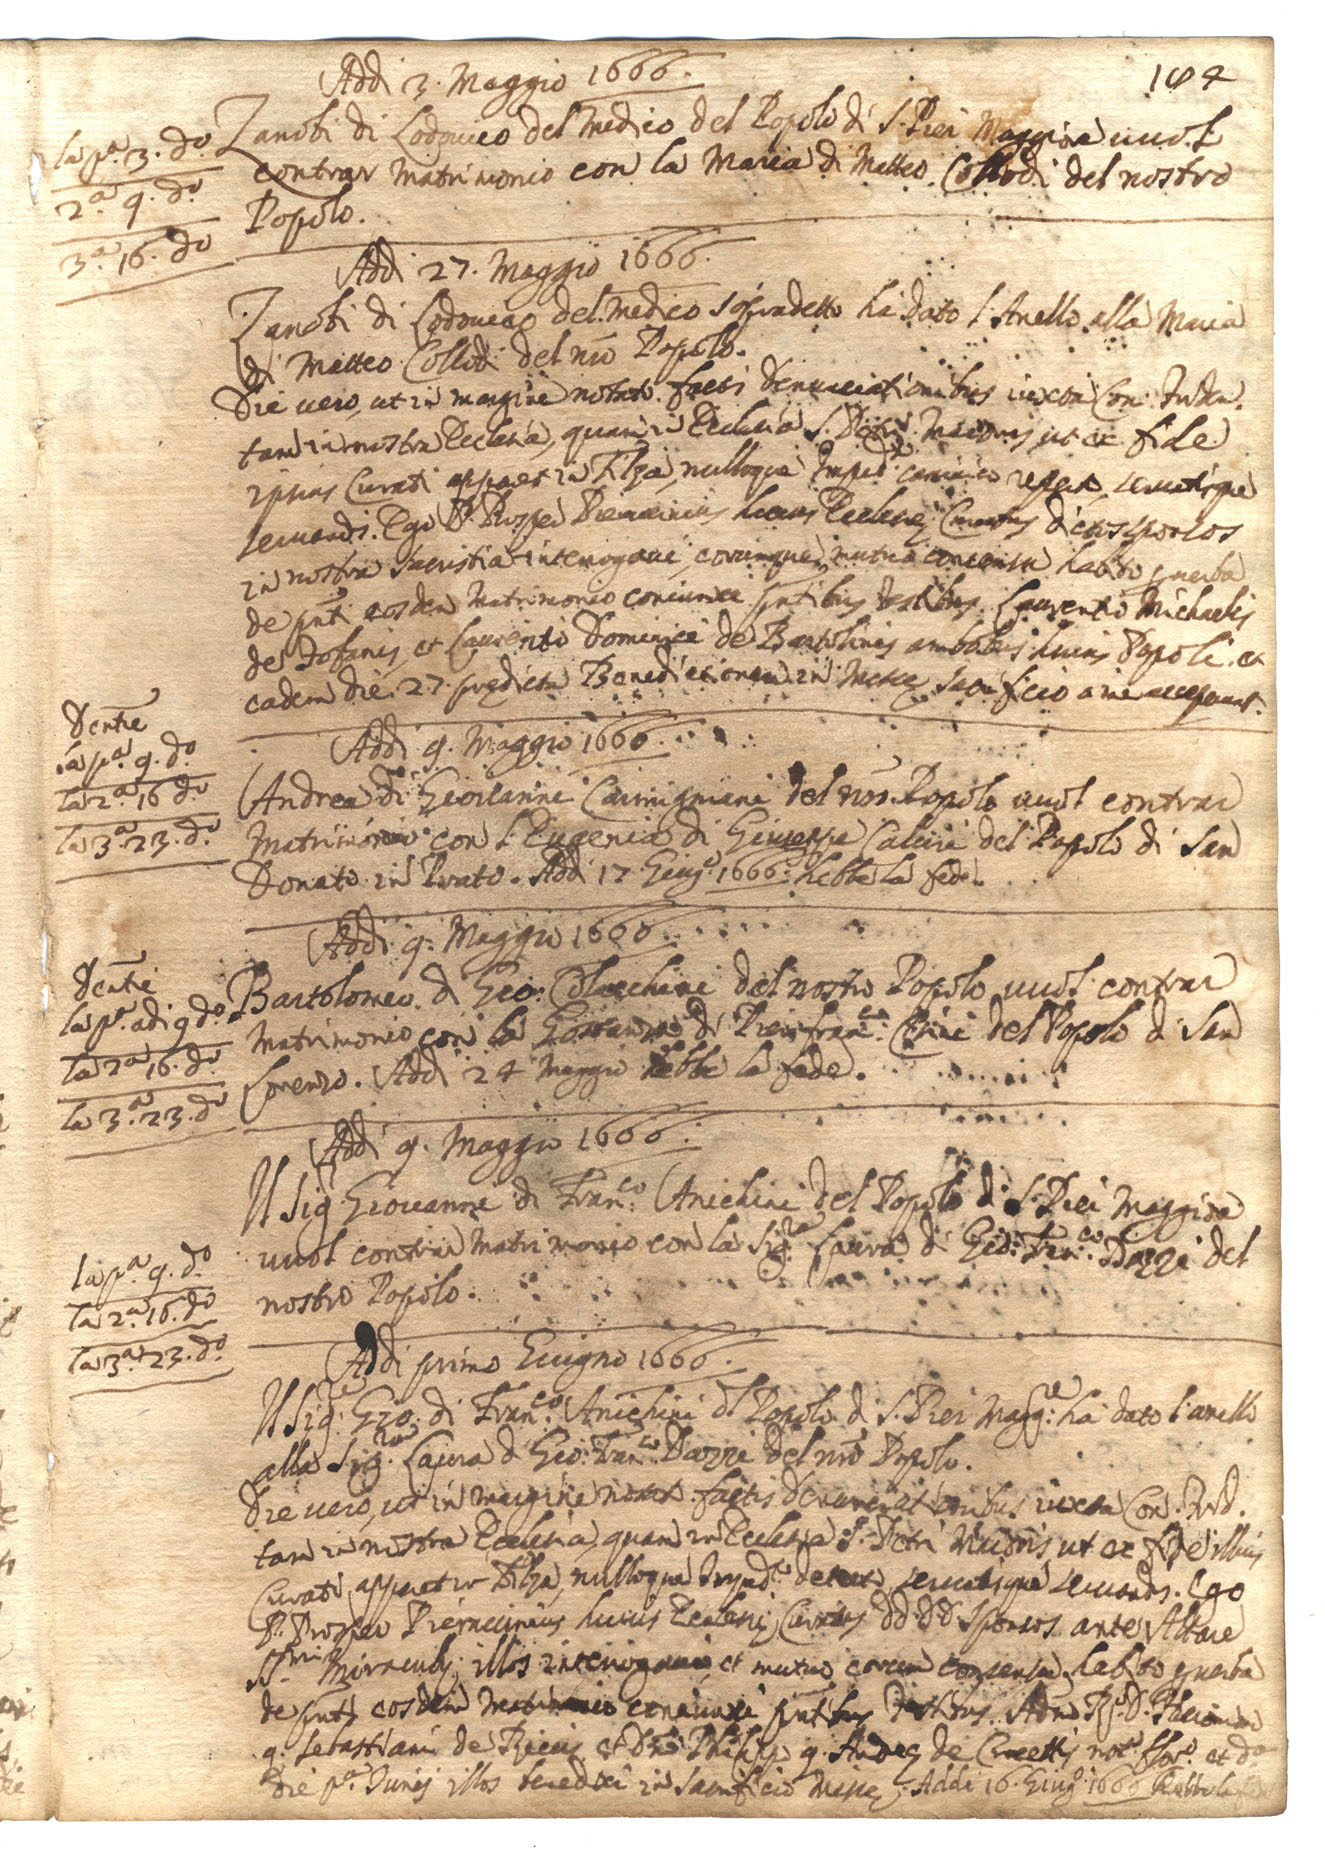 Addi 3. Maggio 1666.
184
la pa. 3. do.
2a 9. do.
3a 16. do
Zanobi di Lodovico del Medico del Popolo di S. Pier Maggiore vuol
contrar Matrimonio con la Maria di Matteo Collodi del nostro
Popolo.
Addi 27. Maggio 1666.
Zanobi di Lodovico del Medico sopradetto ha dato l'Anello alla Maria
di Matteo Collodi del nro Popolo.
Die vero, ut in margine notato. factis denunciationibus iuxta Con. Triden.
tam in nostra Ecclesia, quam in Ecclesia S. Petri Maioris ut ex fide
ipsius Curati apparet in Filza, nulloque Imped.to canonico servatisque
servandis. Ego P. Prosper Pieraccinius huius Ecclesie Curatus dictos sponsos
in nostra Sacristia interrogavi, eorumque mutuo consensu habito p verba
de pnti eosdem Matrimonio coniunxi pntibus testibus Laurentio Michaelis
de Dofanis, et Laurentio Dominici de Bartolinis ambobus huius Popoli. et
eadem die. 27. predicta Benedictionem in Misse Sacrificio a me
Dentie
la pa. 9. do.
la 2a. 16 do.
la 3a. 23. do.
Addi 9. Maggio 1666.
Andrea di Giovanni Carmignani del nro. Popolo vuol contrar
Matrimonio con l'Eugenia di Giuseppe Calcini del Popolo di San
Donato in Prato. Addi 17 Giug.o 1666. hebbe la fede.
Addi 9. Maggio 1666
Dentie
la pa. adi 9 do.
la 2a 16. do.
la 3a. 23. do
Bartolomeo di Gio: del nostro Popolo vuol contrar
Matrimonio con la Gostanza di Pier fran.co Chini del Popolo di San
Lorenzo. Addi 24 Maggio hebbe la fede.
Addi 9. Maggio 1666.
la pa. 9. do.
la 2a. 16. do
la 3a. 23. do.
Il Sig Giovanni di Fran.co Anichini del Popolo di S. Pier Maggiore
vuol contrar Matrimonio con la Sig.ra Laura di Gio: Fran.co Dazzi del
nostro Popolo.
Addi primo Giugno 1666.
Il Sig.re Gio. di Fran.co Anichini dl Popolo di S. Pier Magg.re ha dato l'anello
alla Sig.ra Laura di Gio: Fran.co Dazzi del nro Popolo.
Die vero, ut in margine notat. factis denunciationibus iuxta Con. Trid.
tam in nostra Ecclesia, quam in Ecclesia S. Petri Maioris ut ex fide illius
Curati apparet in Filza, nulloque Imped.to detecto, servatisque servandis. Ego
P. Prosper Pieraccinius huius Ecclesie Curatus dd. dd. sponsos ante Altare
SS.mi Miraculi, illos interrogavi, et mutuo eorum consensu habito p verba
de pnti eosdem Matrimonio coniunxi pntibus testibus. Adm R.do D.
q. Sebastiani de Riccis, et Dno Philippo q. Andree de not.o flor.o et d.a
die pa. Junij illos benedixi in Sacrificio Misse. Addi 16. Giug.o 1666 hebbe la fe